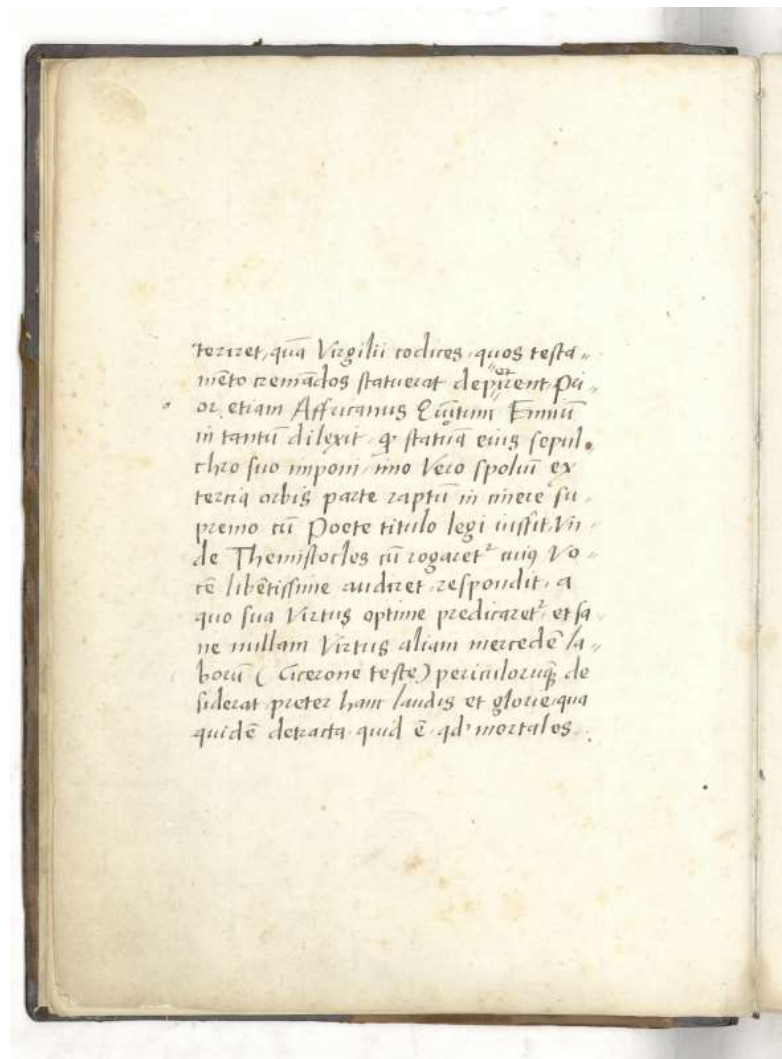 teriret, quā Virgilii codices, quos testa„
mēto cremādos statuerat depirent. Pri„
or etiam Affricanus Quītum Enniū
in tantū dilexit, statuā eius sepul
chro suo imponi, imo Vero spoliū ex
tercia orbis parte raptū in cinere su„
premo cū Poete titulo legi iussit. Vn„
de Themistocles cū rogaret² cuiꝰ Vo„
cē libētissime audiret, respondit, a
quo sua Virtus optime predicaret², et sa„
ne nullam Virtus aliam mercedē la„
borū (Cicerone teste) periculoruqꝫ de
siderat preter hanc laudis et glorie, qua
quidē detracta quid ē qd' mortales